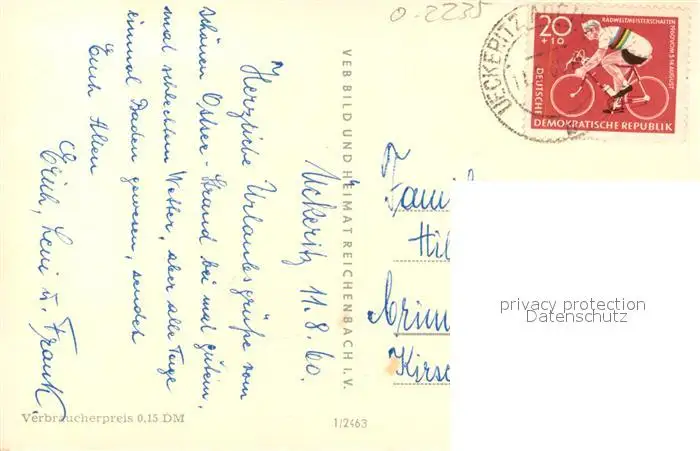 0-2235
UECKERITZ
RADWELTMEISTERSCHAFTEN
1960 VOM 3.-14. AUGUST
20
+10
DEUTSCHE
DEMOKRATISCHE REPUBLIK
Ückeritz 11.8.60.
Herzliche Urlaubsgrüße vom
schönen Ostsee-Strand bei mal gutem,
mal schlechtem Wetter, aber alle Tage
einmal Baden gewesen, sendet
Euch Allen
Erich, Leni u. Frank.
VEB BILD UND HEIMAT REICHENBACH I. V.
Famil
Hil
Crim
Kirsc
privacy protection
Datenschutz
Verbraucherpreis 0,15 DM
1/2463